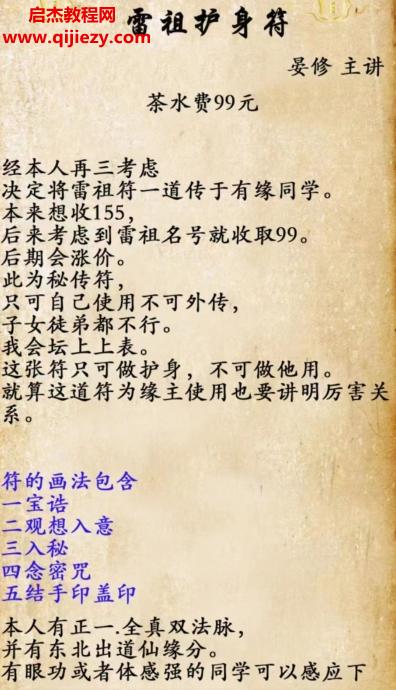 启杰教程网
www.qijiezy.com
雷祖护身符
晏修 主讲
茶水费99元
经本人再三考虑
决定将雷祖符一道传于有缘同学。
本来想收155,
后来考虑到雷祖名号就收取99。
后期会涨价。
此为秘传符,
只可自己使用不可外传,
子女徒弟都不行。
我会坛上上表。
这张符只可做护身，不可做他用。
就算这道符为缘主使用也要讲明厉害关
系。
符的画法包含
一宝诰
二观想入意
三入秘
四念密咒
五结手印盖印
本人有正一.全真双法脉,
并有东北出道仙缘分。
有眼功或者体感强的同学可以感应下